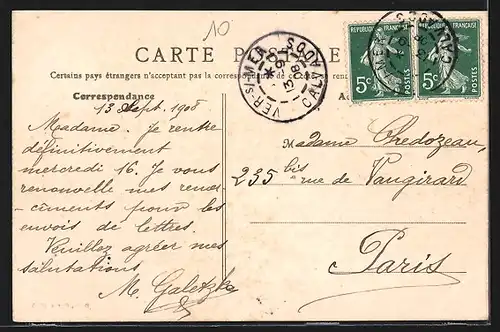 10
CARTE
Certains pays étrangers n'acceptent pas la correspondance
Correspondance
13 Sept. 1908
Madame. Je rentre
définitivement
mercredi 16. Je vous
renouvelle mes remer-
ciments pour les
envois de lettres.
Veuillez agréer mes
salutations
M. Galetzka
VER-S-MER
CALVADOS
RÉPUBLIQUE FRANÇAISE
5c
POSTES
5c
POSTES
Madame Chedozeau,
235 bis rue de Vaugirard
Paris